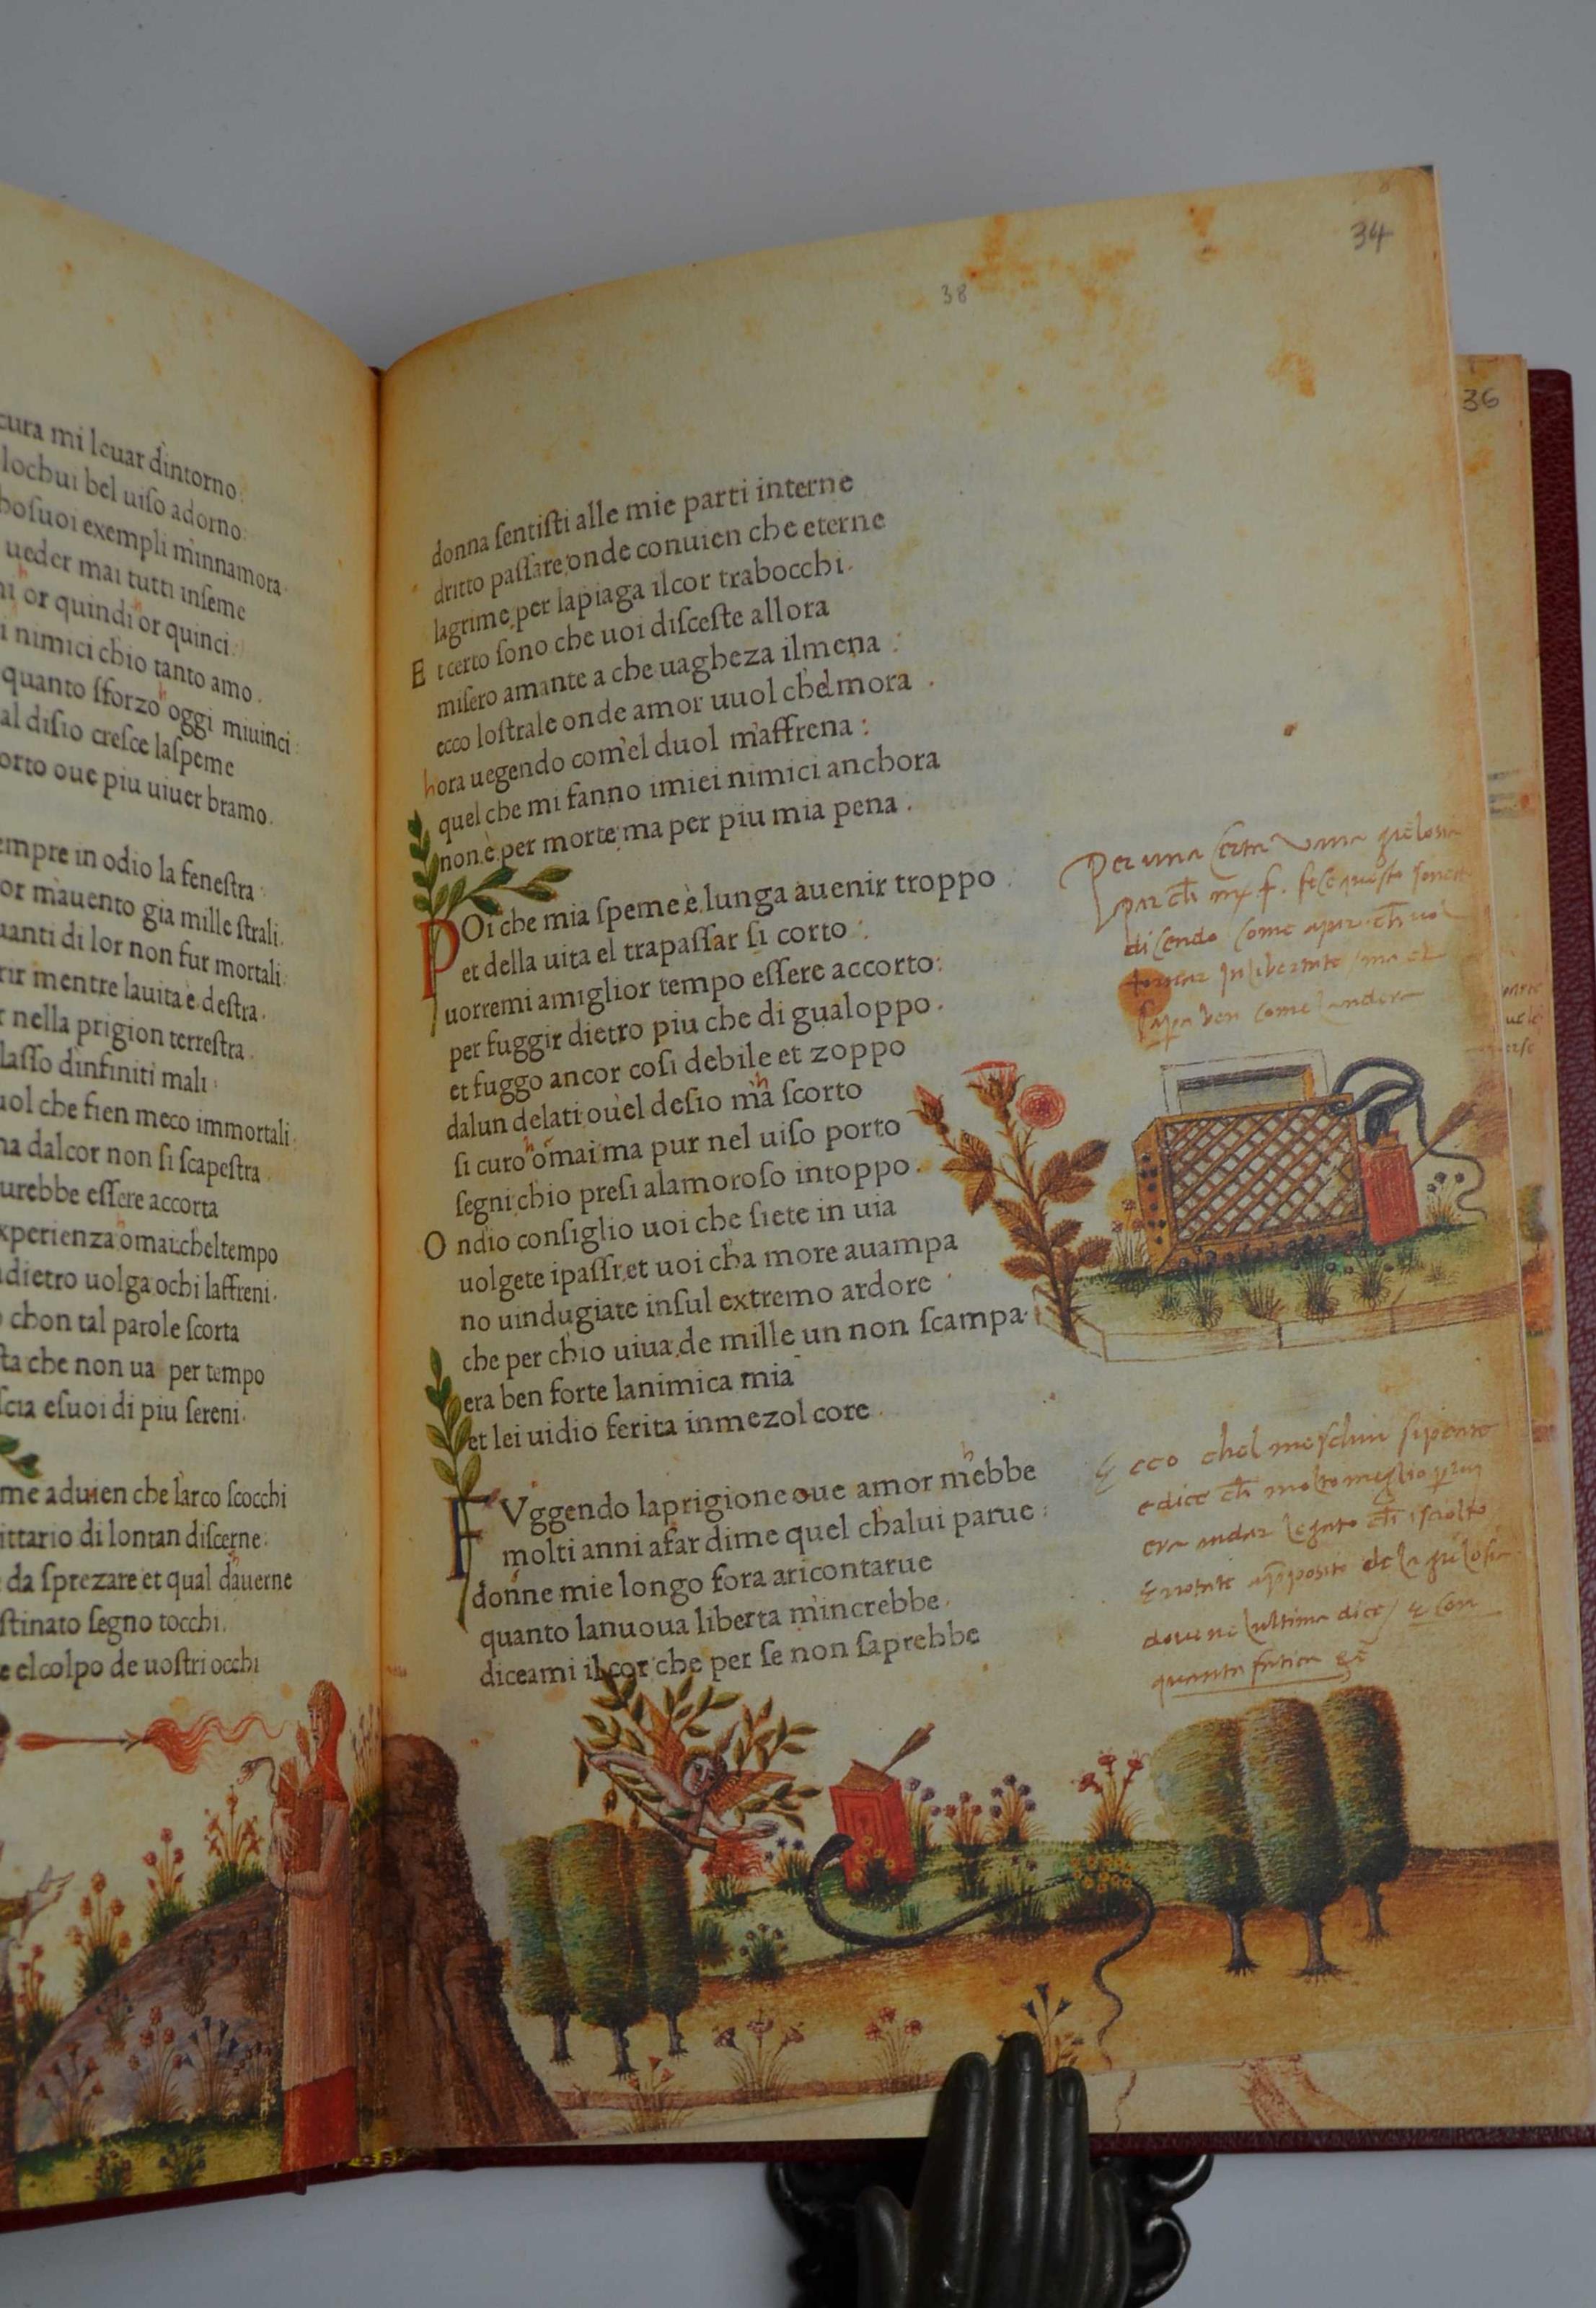 cura mi leuar dintorno:
lochui bel uiſo adorno:
boſuoi exempli minnamora.
ueder mai tutti inſeme
or quindi or quinci:
nimici chio tanto amo.
quanto sforzo h oggi miuinci:
al diſio creſce laſpeme
orto oue piu uiuer bramo.
empre in odio la feneſtra:
or mauento gia mille ſtrali.
uanti di lor non fur mortali:
rir mentre lauita e deſtra.
nella prigion terreſtra.
laſſo dinfiniti mali:
uol che fien meco immortali.
ma dalcor non ſi ſcapeſtra.
urebbe eſſere accorta
xperienza h omai: cheltempo
dietro uolga ochi laffreni.
chon tal parole ſcorta
ta che non ua per tempo
ſcia eſuoi di piu ſereni.
me aduien che larco ſcocchi
ittario di lontan diſcerne:
da ſprezare et qual dhauerne
ſtinato ſegno tocchi.
e elcolpo de uoſtri occhi
34
38
donna ſentiſti alle mie parti interne
dritto paſſare onde conuien che eterne
lagrime per lapiaga ilcor trabocchi.
E t certo ſono che uoi diſceſte allora
miſero amante a che uagheza ilmena:
ecco loſtrale onde amor uuol chel mora.
hora uegendo comel duol maffrena:
quel che mi fanno imiei nimici anchora
non è per morte ma per piu mia pena.
POi che mia ſpeme è lunga auenir troppo
et della uita el trapaſſar ſi corto:
uorremi amiglior tempo eſſere accorto:
per fuggir dietro piu che di gualoppo.
et fuggo ancor coſi debile et zoppo
dalun delati ouel deſio mha ſcorto
ſi curo homai ma pur nel uiſo porto
ſegni chio preſi alamoroſo intoppo.
O ndio conſiglio uoi che ſiete in uia
uolgete ipaſſi et uoi cha more auampa
no uindugiate inſul extremo ardore
che per chio uiua de mille un non ſcampa
era ben forte lanimica mia
et lei uidio ferita inmezol core.
FVggendo laprigione oue amor mhebbe
molti anni afar dime quel chalui parue:
donne mie longo fora aricontarue
quanto lanuoua liberta mincrebbe.
diceami il cor che per ſe non ſaprebbe
Per una certa uana gieloſia
di cendo come
tornar in libertate / ma el
ſapea ben come landera
Ecco chel meſchin ſi pente
e dice ch̅ molto meglio
era andar legato ch̅ iſciolto
doue ne lultima dice /
quanta fatica
36